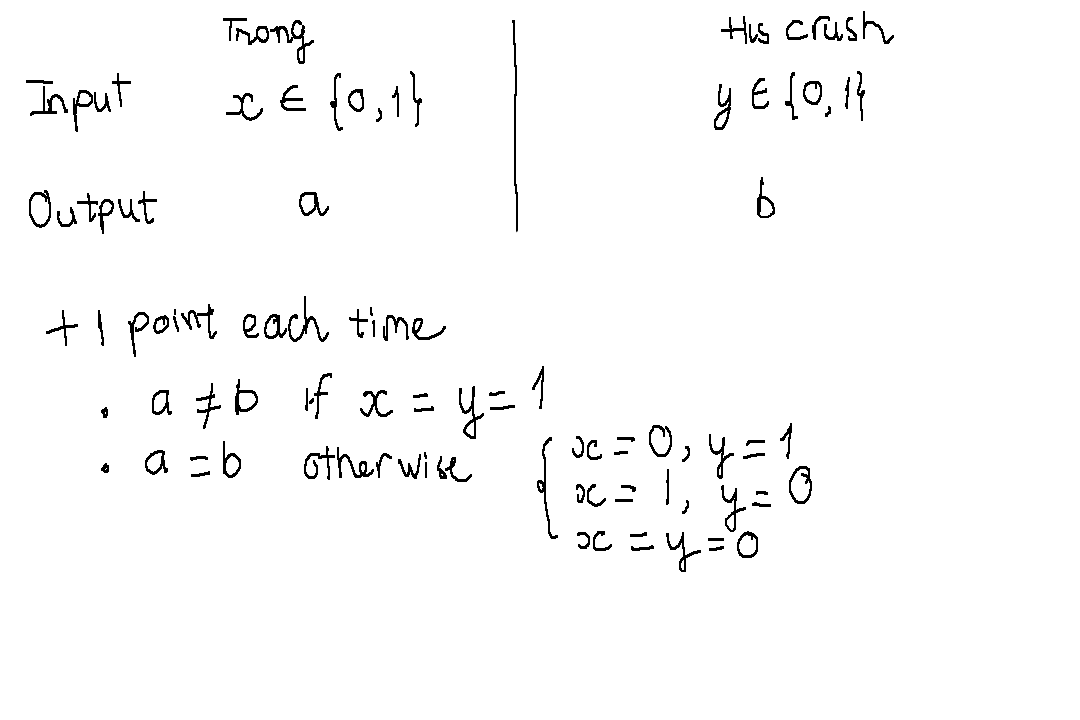 Trong His crush
Input x ∈ {0,1} y ∈ {0,1}
Output a b
+1 point each time
. a ≠ b if x = y = 1
. a = b otherwise { x = 0, y = 1
x = 1, y = 0
x = y = 0